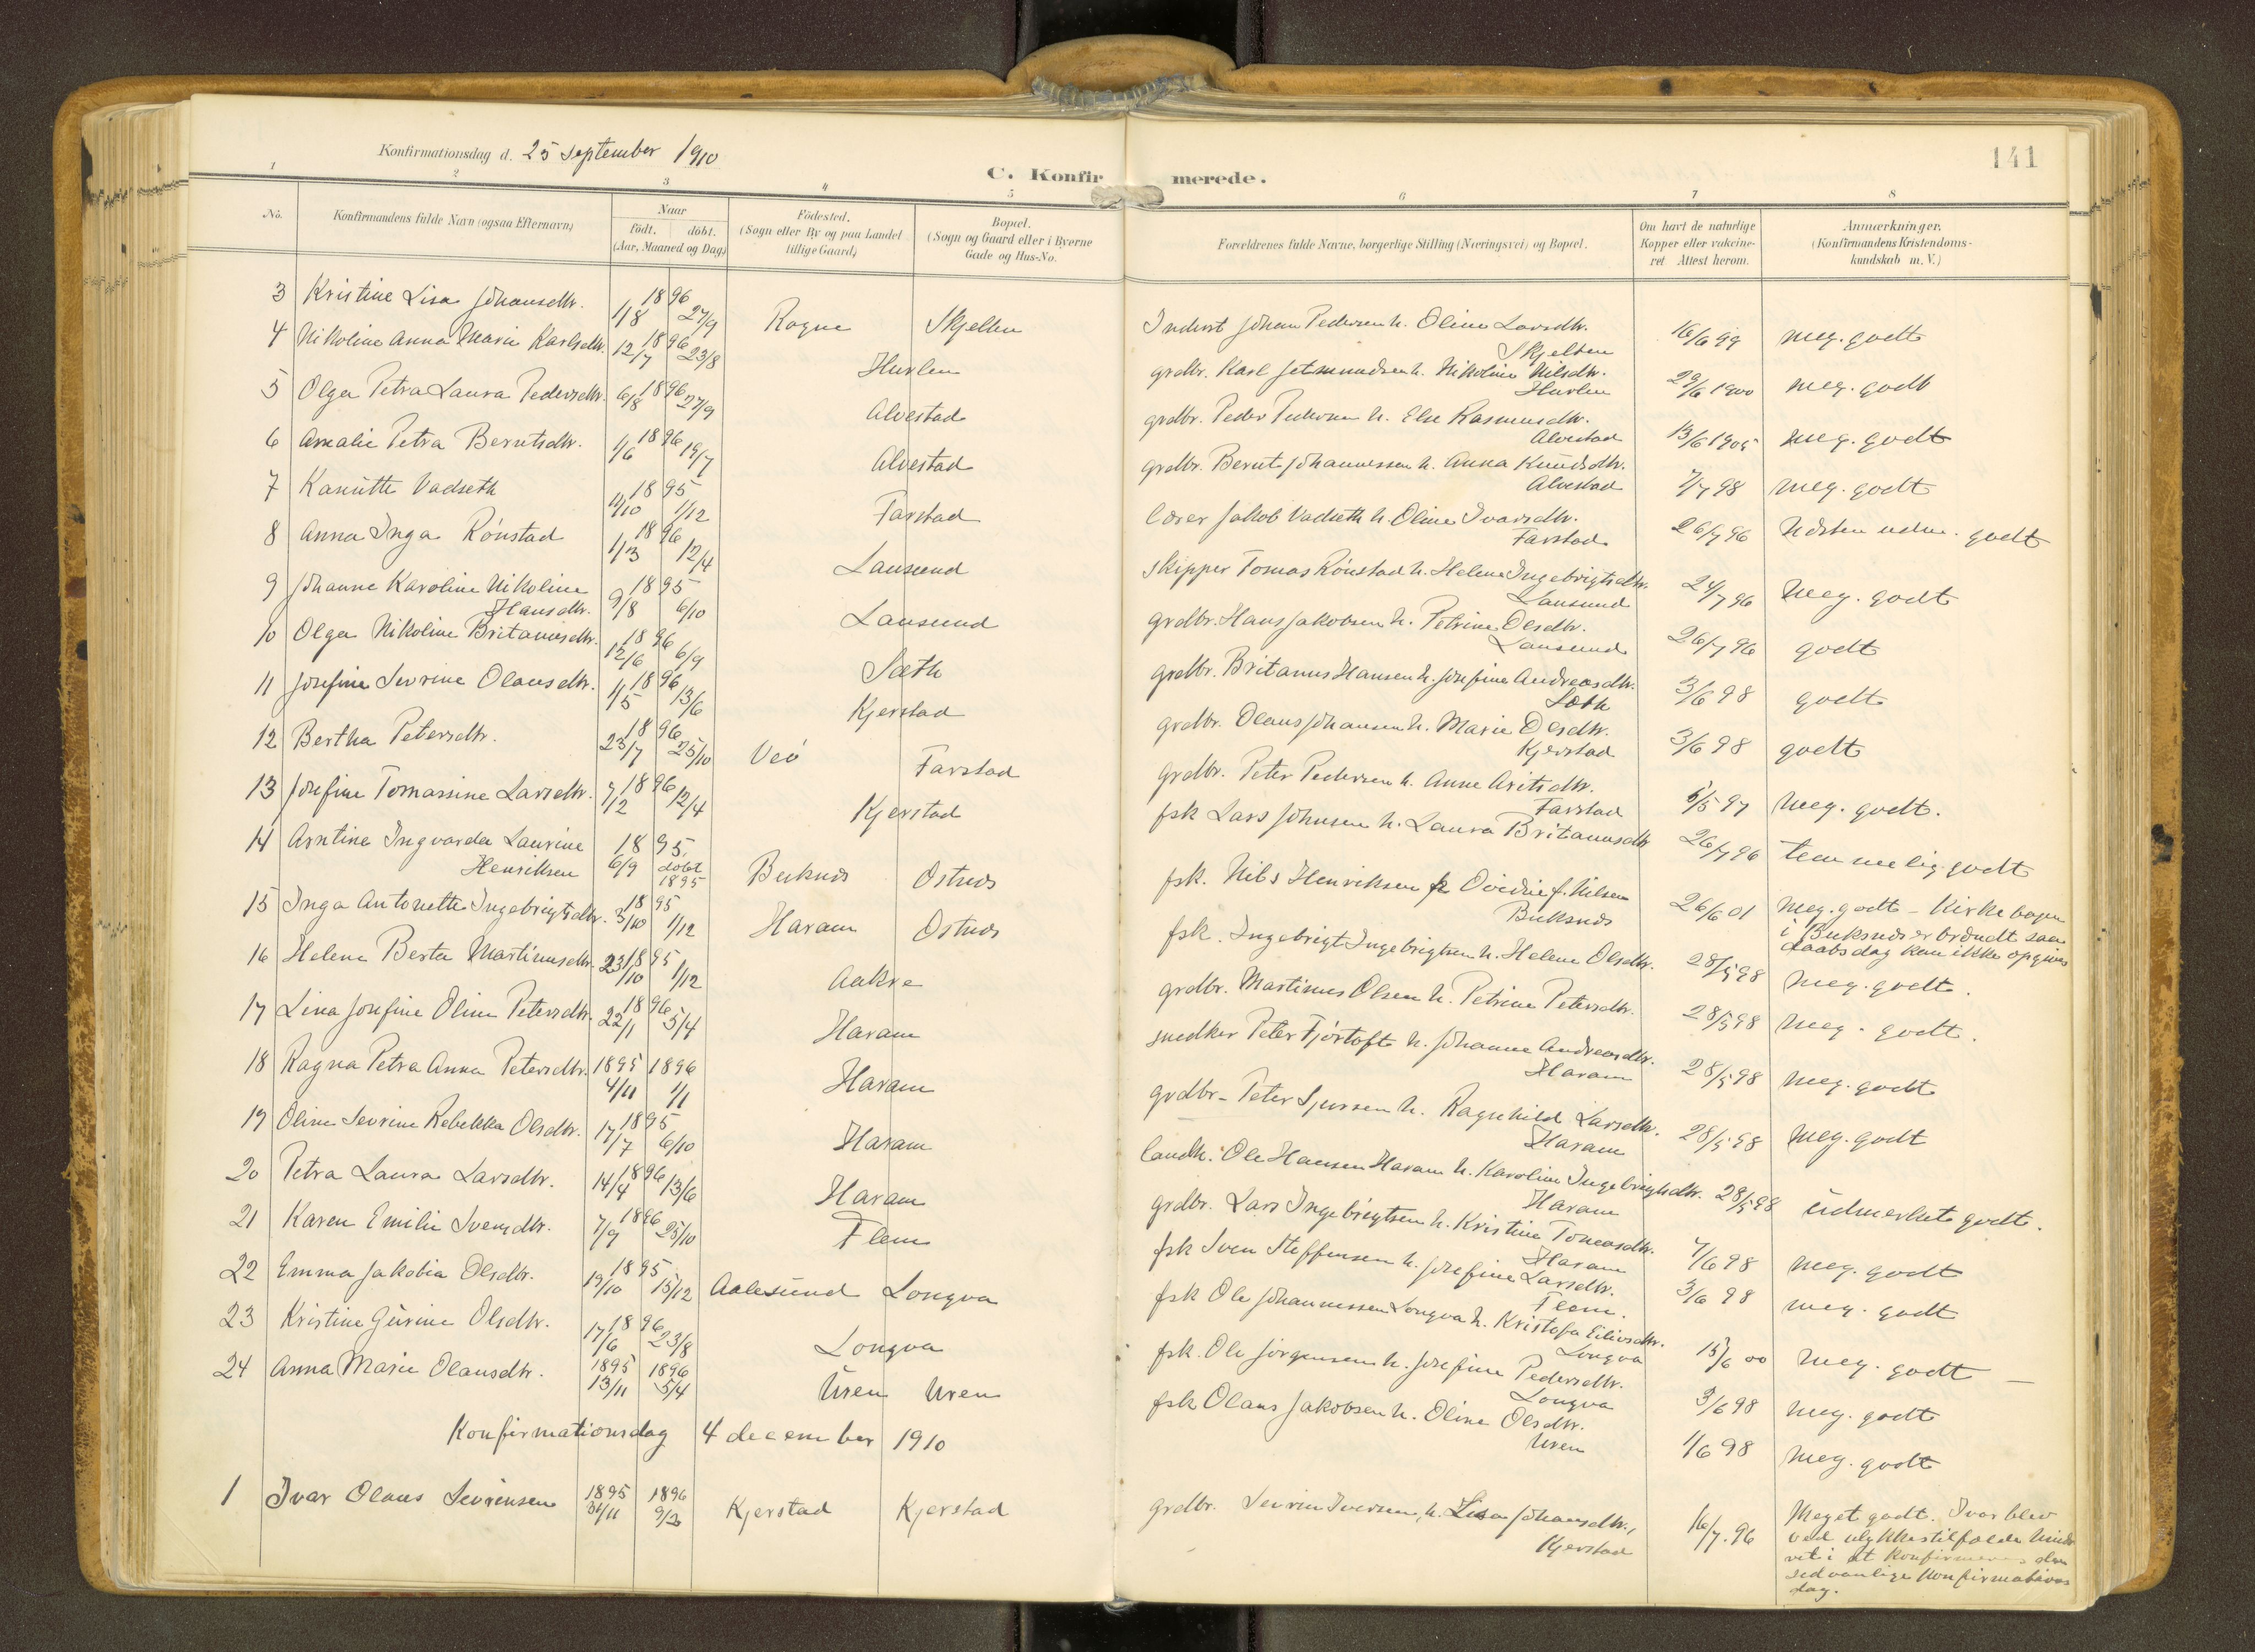 Konfirmationsdag d. 25 September 1910
C. Konfirmerede.
141
1 2 3 4 5 6 7 8
No. Konfirmandens fulde Navn (ogsaa Efternavn) Naar født. døbt. (Aar, Maaned og Dag) Fødested. (Sogn eller By og paa Landet tillige Gaard) Bopæl. (Sogn og Gaard eller i Byerne Gade og Hus-No. Forældrenes fulde Navne, borgerlige Stilling (Næringsvei) og Bopæl. Om havt de naturlige Kopper eller vakcineret Attest herom. Anmærkninger. (Konfirmandens Kristendomskundskab m. V.)
3 Kristine Lisa Johansdtr. 1896 1/8 27/9 Rogne Skjelten Inderst Johan Pedersen h. Oline Larsdtr. Skjelten 16/6 99 meg. godt
4 Nikoline Anna Marie Karlsdtr. 1896 12/7 23/8 Hurlen grdbr. Karl Jetmundsen h. Nikoline Nilsdtr. Hurlen 29/6 1900 meg. godt
5 Olga Petra Laura Pedersdtr. 1896 6/8 27/9 Alvestad grdbr. Peder Pedersen h. Else Rasmusdtr. Alvestad 13/6 1905 meg. godt
6 Amalie Petra Berntsdtr. 1896 1/6 19/7 Alvestad grdbr. Bernt Johannessen h. Anna Knudsdtr. Alvestad 7/7 98 meg. godt
7 Kanutte Vadseth 1895 11/10 1/12 Farstad Lærer Jakob Vadseth h. Oline Ivarsdtr. Farstad 26/7 96 Næsten udm. godt
8 Anna Inga Rönstad 1896 1/3 12/4 Lausund Skipper Tomas Rönstad h. Helene Ingebrigtsdtr. Lausund 24/7 96 meg. godt
9 Johanne Karoline Nikoline Hansdtr. 1895 9/8 6/10 Lausund grdbr. Hans Jakobsen h. Petrine Olsdtr. Lausund 26/7 96 godt
10 Olga Nikoline Britanusdtr. 1896 12/6 6/9 Sæth grdbr. Britanus Hansen h. Josefine Andreasdtr. Sæth 3/6 98 godt
11 Josefine Sevrine Olausdtr. 1896 1/5 13/6 Kjerstad grdbr. Olaus Johansen h. Marie Olsdtr. Kjerstad 3/6 98 godt
12 Bertha Petersdtr. 1896 23/7 25/10 Veö Farstad grdbr. Peter Pedersen h. Anne Aritsdtr. Farstad 5/5 97 meg. godt.
13 Josefine Tomassine Larsdtr. 1896 7/2 12/4 Kjerstad fsk Lars Johnsen h. Laura Britanusdtr 26/7 96 temmelig godt
14 Arntine Ingvarda Laurine Henriksen 1895 6/9 döbt 1895 Buksnes Ostnes fsk. Nils Henriksen Buksnes 26/6 01 meg. godt - Kirkebogen i Buksnes er brændt saa daabsdag kan ikke opgives
15 Inga Antonette Ingebrigtsdtr. 1895 3/10 1/12 Haram Ostnes fsk. Ingebrigt Ingebrigtsen h. Helene Olsdtr. 28/5 98 meg. godt.
16 Helene Berta Martinusdtr. 1895 23/10 1/12 Aakre grdbr. Martinus Olsen h. Petrine Petersdtr. 28/5 98 meg. godt.
17 Lina Josefine Oline Petersdtr. 1896 22/1 5/4 Haram snedker Peter Fjörtoft h. Johanne Andreasdtr. Haram 28/5 98 meg. godt
18 Ragna Petra Anna Petersdtr. 1895 4/11 1896 1/1 Haram grdbr. Peter Sjursen h. Ragnhild Larsdtr. Haram 28/5 98 meg. godt
19 Oline Sevrine Rebekka Olsdtr. 1895 17/7 6/10 Haram landh. Ole Hansen Haram h. Karoline Ingebrigtsdtr. Haram 28/5 98 udmerket godt.
20 Petra Laura Larsdtr. 1896 14/4 13/6 Haram grdbr. Lars Ingebrigtsen h. Kristine Tomasdtr. Haram 4/6 98 meg. godt
21 Karen Emilie Svensdtr. 1896 7/9 25/10 Flem fsk Sven Steffensen h. Josefine Larsdtr. Flem. 3/6 98 meg. godt
22 Emma Jakobia Olsdtr. 1895 19/10 15/12 Aalesund Longva fsk Ole Johannessen Longva h. Kristofa Eiliosdtr. Longva 15/6 00 meg. godt
23 Kristine Gurine Olsdtr. 1896 17/6 23/8 Longva fsk. Ole Jörgensen h. Josefine Pedersdtr. Longva 3/6 98 meg. godt
24 Anna Marie Olausdtr. 1895 13/11 1896 5/4 Uren Uren fsk Olaus Jakobsen h. Oline Olsdtr. Uren 1/6 98 meg. godt
Konfirmationsdag 4 december 1910
1 Ivar Olaus Sevrensen 1895 1896 9/2 Kjerstad Kjerstad grdbr. Sevrin Iversen, h. Lisa Johansdtr., Kjerstad 16/7. 96 Meget godt. Ivar blev ved ulykkestilfælde hindret i at konfirmeres den sedvanlige konfirmationsdag.